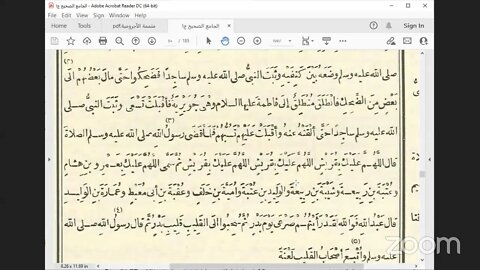 الجامع الصحيح ج١ - Adobe Acrobat Reader DC (64-bit)
الجامع الصحيح ج١
Sign In
صلى الله عليه وسلم وضعه بين كتفيه وثبت النبي صلى الله عليه وسلم ساجدا فضحكوا حتى مال بعضهم الى
بعض من الضحك فانطلق منطلق الى فاطمة عليها السلام وهى جويرية فأقبلت تسعى وثبت النبي صلى
الله عليه وسلم ساجدا حتى ألقته عنه وأقبلت عليهم تسبهم فلما قضى رسول الله صلى الله عليه وسلم الصلاة
قال اللهم عليك بقريش اللهم عليك بقريش اللهم عليك بقريش ثم سمى اللهم عليك بعمرو بن هشام
وعتبة بن ربيعة وشيبة بن ربيعة والوليد بن عتبة وأمية بن خلف وعقبة بن أبى معيط وعمارة بن الوليد
قال عبد الله فوالله لقد رأيتهم صرعى يوم بدر ثم سحبوا الى القليب قليب بدر ثم قال رسول الله صلى الله
عليه وسلم وأتبع أصحاب القليب لعنة
8.26 x 11.69 in
zoom